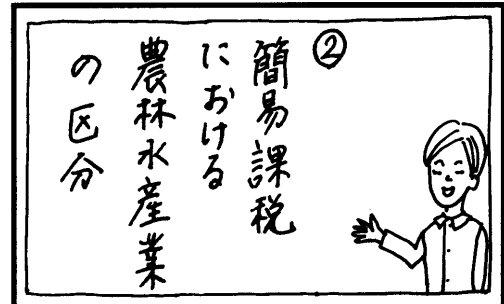 ②
簡易課税
における
農林水産業
の区分